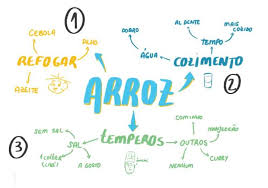 1
CEBOLA
ALHO
REFOGAR
AZEITE
AL DENTE
MAIS
COZIDO
DOBRO
TEMPO
ÁGUA
COZIMENTO
2
ARROZ
3
TEMPEROS
SEM SAL
SAL
1 COLHER
(CHÁ)
A GOSTO
COMINHO
MANJERICÃO
OUTROS
NENHUM
CURRY